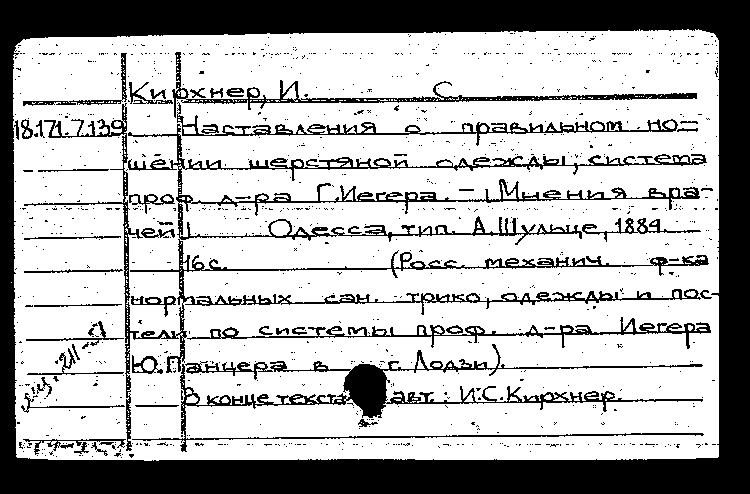 Кирхнер, И. С.
18.171.7.139. Наставления о правильном но=
шении шерстяной одежды, система
проф. д-ра Г. Иегера. - [Мнения вра-
чей]. Одесса, тип. А. Шульце, 1884.
16 с. (Росс. механич. ф-ка
нормальных сан. трико, одежды и пос-
тели по системы проф. д-ра Иегера
Ю. Панцера в г. Лодзи).
В конце текста авт.: И.С. Кирхнер.